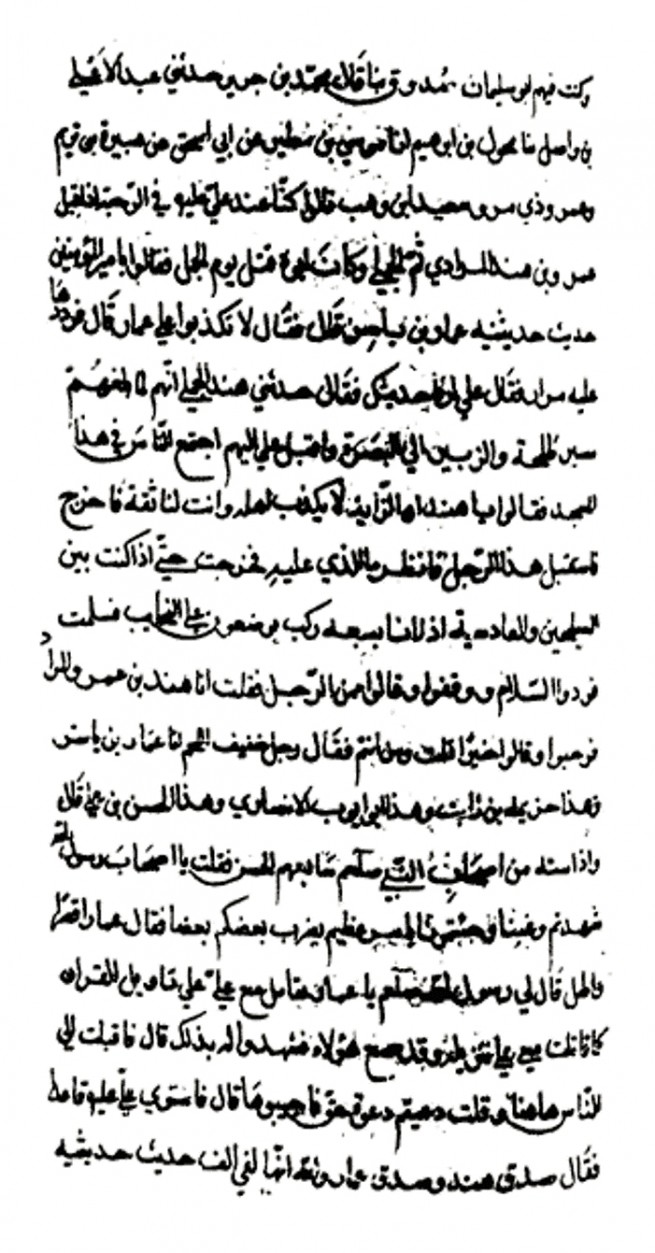 وكنت فيهم ابو سليمان قال محمد بن جرير حدثني عبد الاعلى
بن واصل بنا مخول بن ابراهيم بن مطير عن ابي اسحق عن هبيرة بن يريم
وعمرو ذي مر و سعيد بن وهب قالوا كنا عند علي عليه في الرحبة اذ اقبل
عمرو بن هند المرادي ثم الجملي وكان ابوه قتل يوم الجمل فقالوا يا امير المؤمنين
حديث حديثيه عمار بن ياسر فقال لا تكذبوا علي عمار قال فرددها
عليه مرارا فقال علي حديثك فقال حدثني هند الجملي انهم لما بلغهم
سير طلحة والزبير الي البصرة واقبل علي اليهم اجتمع الناس في هذا
المسجد فقالوا يا هند ان الرايد لا يكذب اهله وانت لنا ثقة فاخرج
فاستقبل هذا الرجل فانظر ما الذي عليه فخرجت حتي اذا كنت بين
السيلحين والقادسية اذ انا بسبعة ركب علي النجايب فسلمت
فردوا السلام ووقفوا وقالوا من الرجل فقلت انا هند بن عمرو المراد
فرحبوا وقالوا خيرا قلت ومن انتم فقال رجل خفيف اللحم انا عمار بن ياسر
وهذا خزيمه بن ثابت وهذا ابو ايوب الانصاري وهذا الحسن بن علي قال
واذا سته من اصحاب النبي صلعم سابعهم الحسن فقلت يا اصحاب رسول الله
شهدتم وغبنا وجئتمونا بامر عظيم يضرب بعضكم بعضا فقال عمار
قال لي رسول الله صلعم يا عمار تقاتل مع علي علي تاويل القران
كما قاتلت معي علي تنزيله وقد سمع هؤلاء فشهدوا له بذلك قال فاقبلت الي
الناس هاهنا وقلت دعيتم دعوة حق فاجيبوها قال فاستوي علي عليه قاعدا
فقال صدق هند وصدق عمار والله انها لفي الف حديث حديثيه